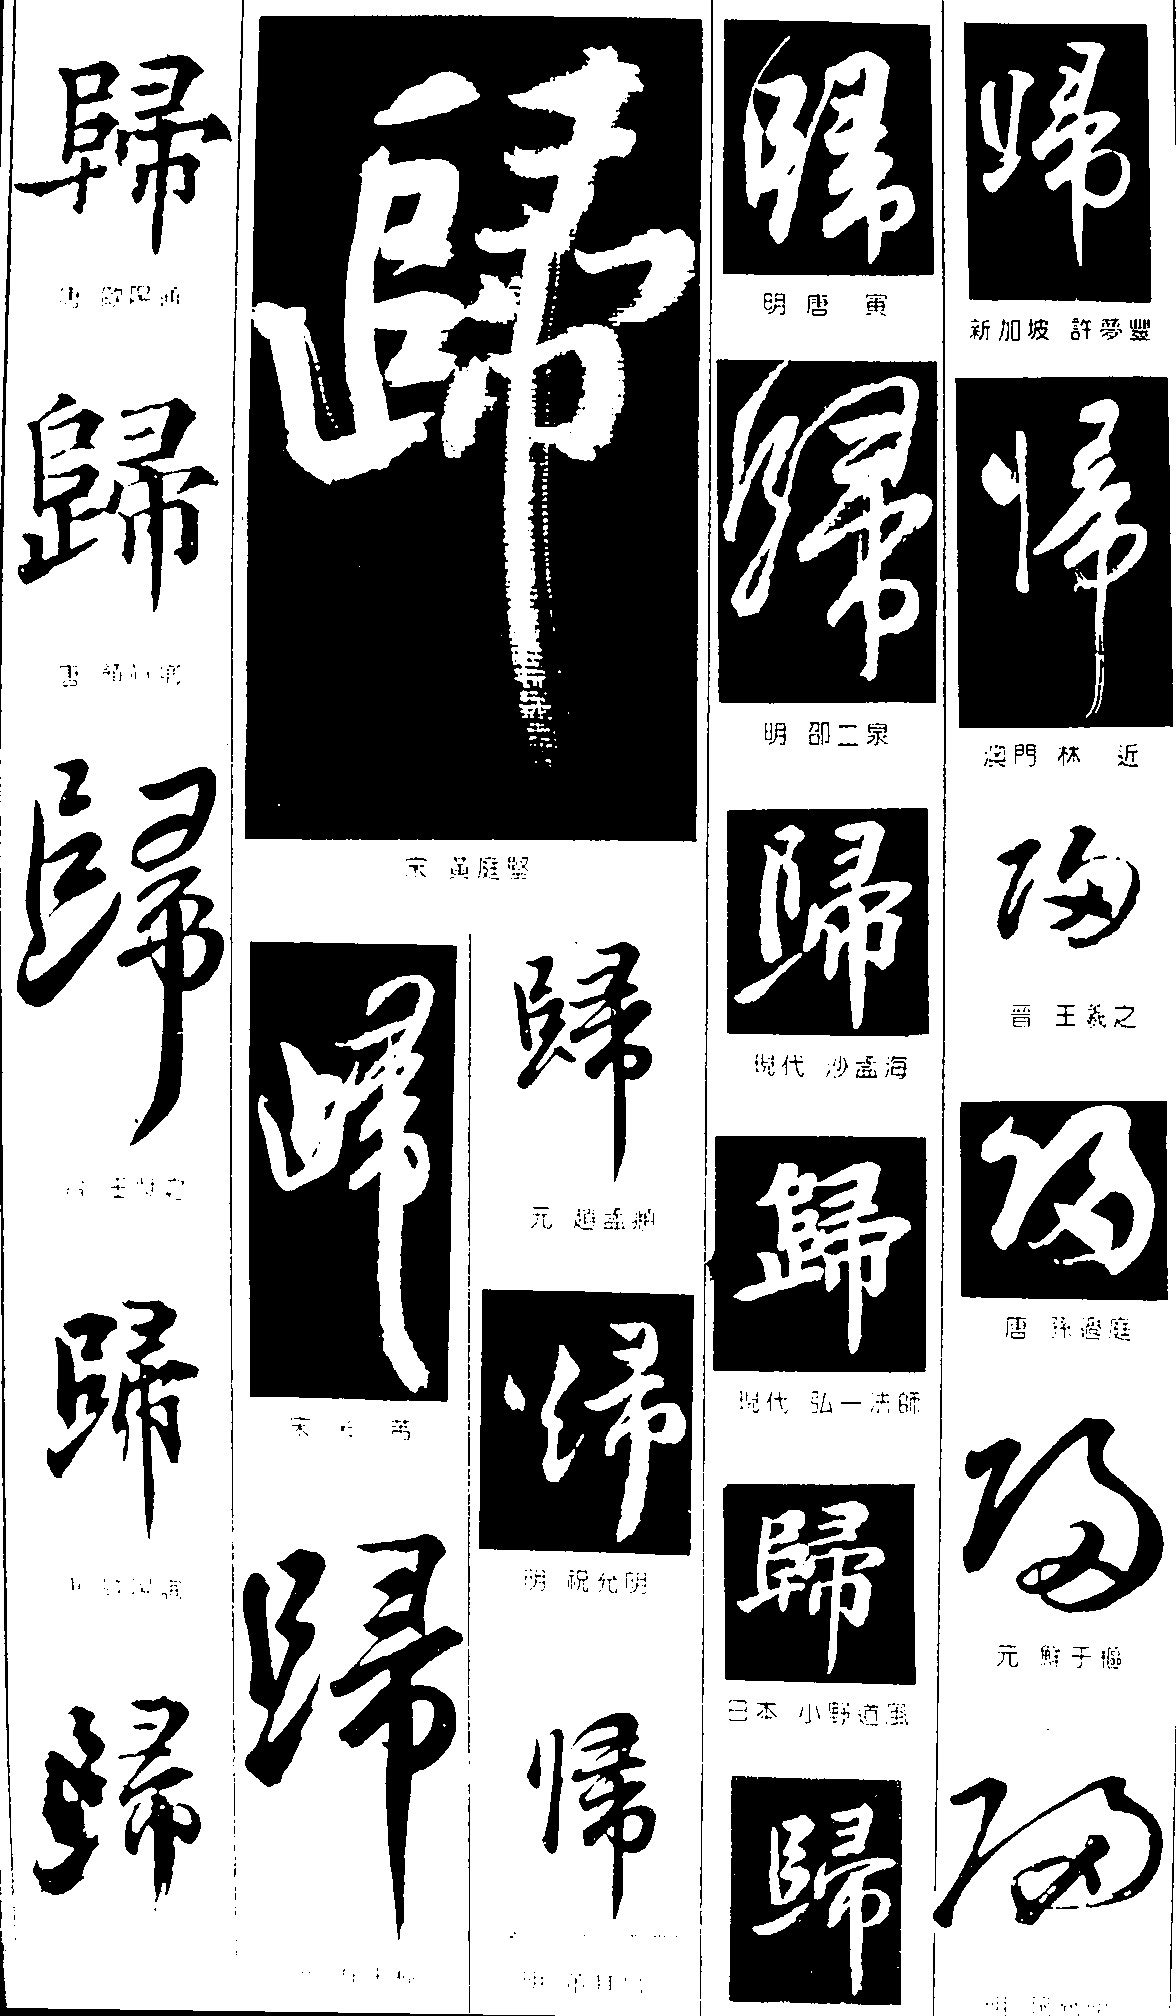 歸
歸
唐 顏真卿
歸
晉 王羲之
歸
歸
歸
宋 黃庭堅
歸
歸
歸
元 趙孟頫
歸
明 祝允明
歸
歸
明 唐 寅
歸
明 邵二泉
歸
現代 沙孟海
歸
現代 弘一法師
歸
日本 小野道風
歸
歸
新加坡 許夢豐
歸
澳門 林 近
歸
晉 王羲之
歸
唐 孫過庭
歸
元 鮮于樞
歸